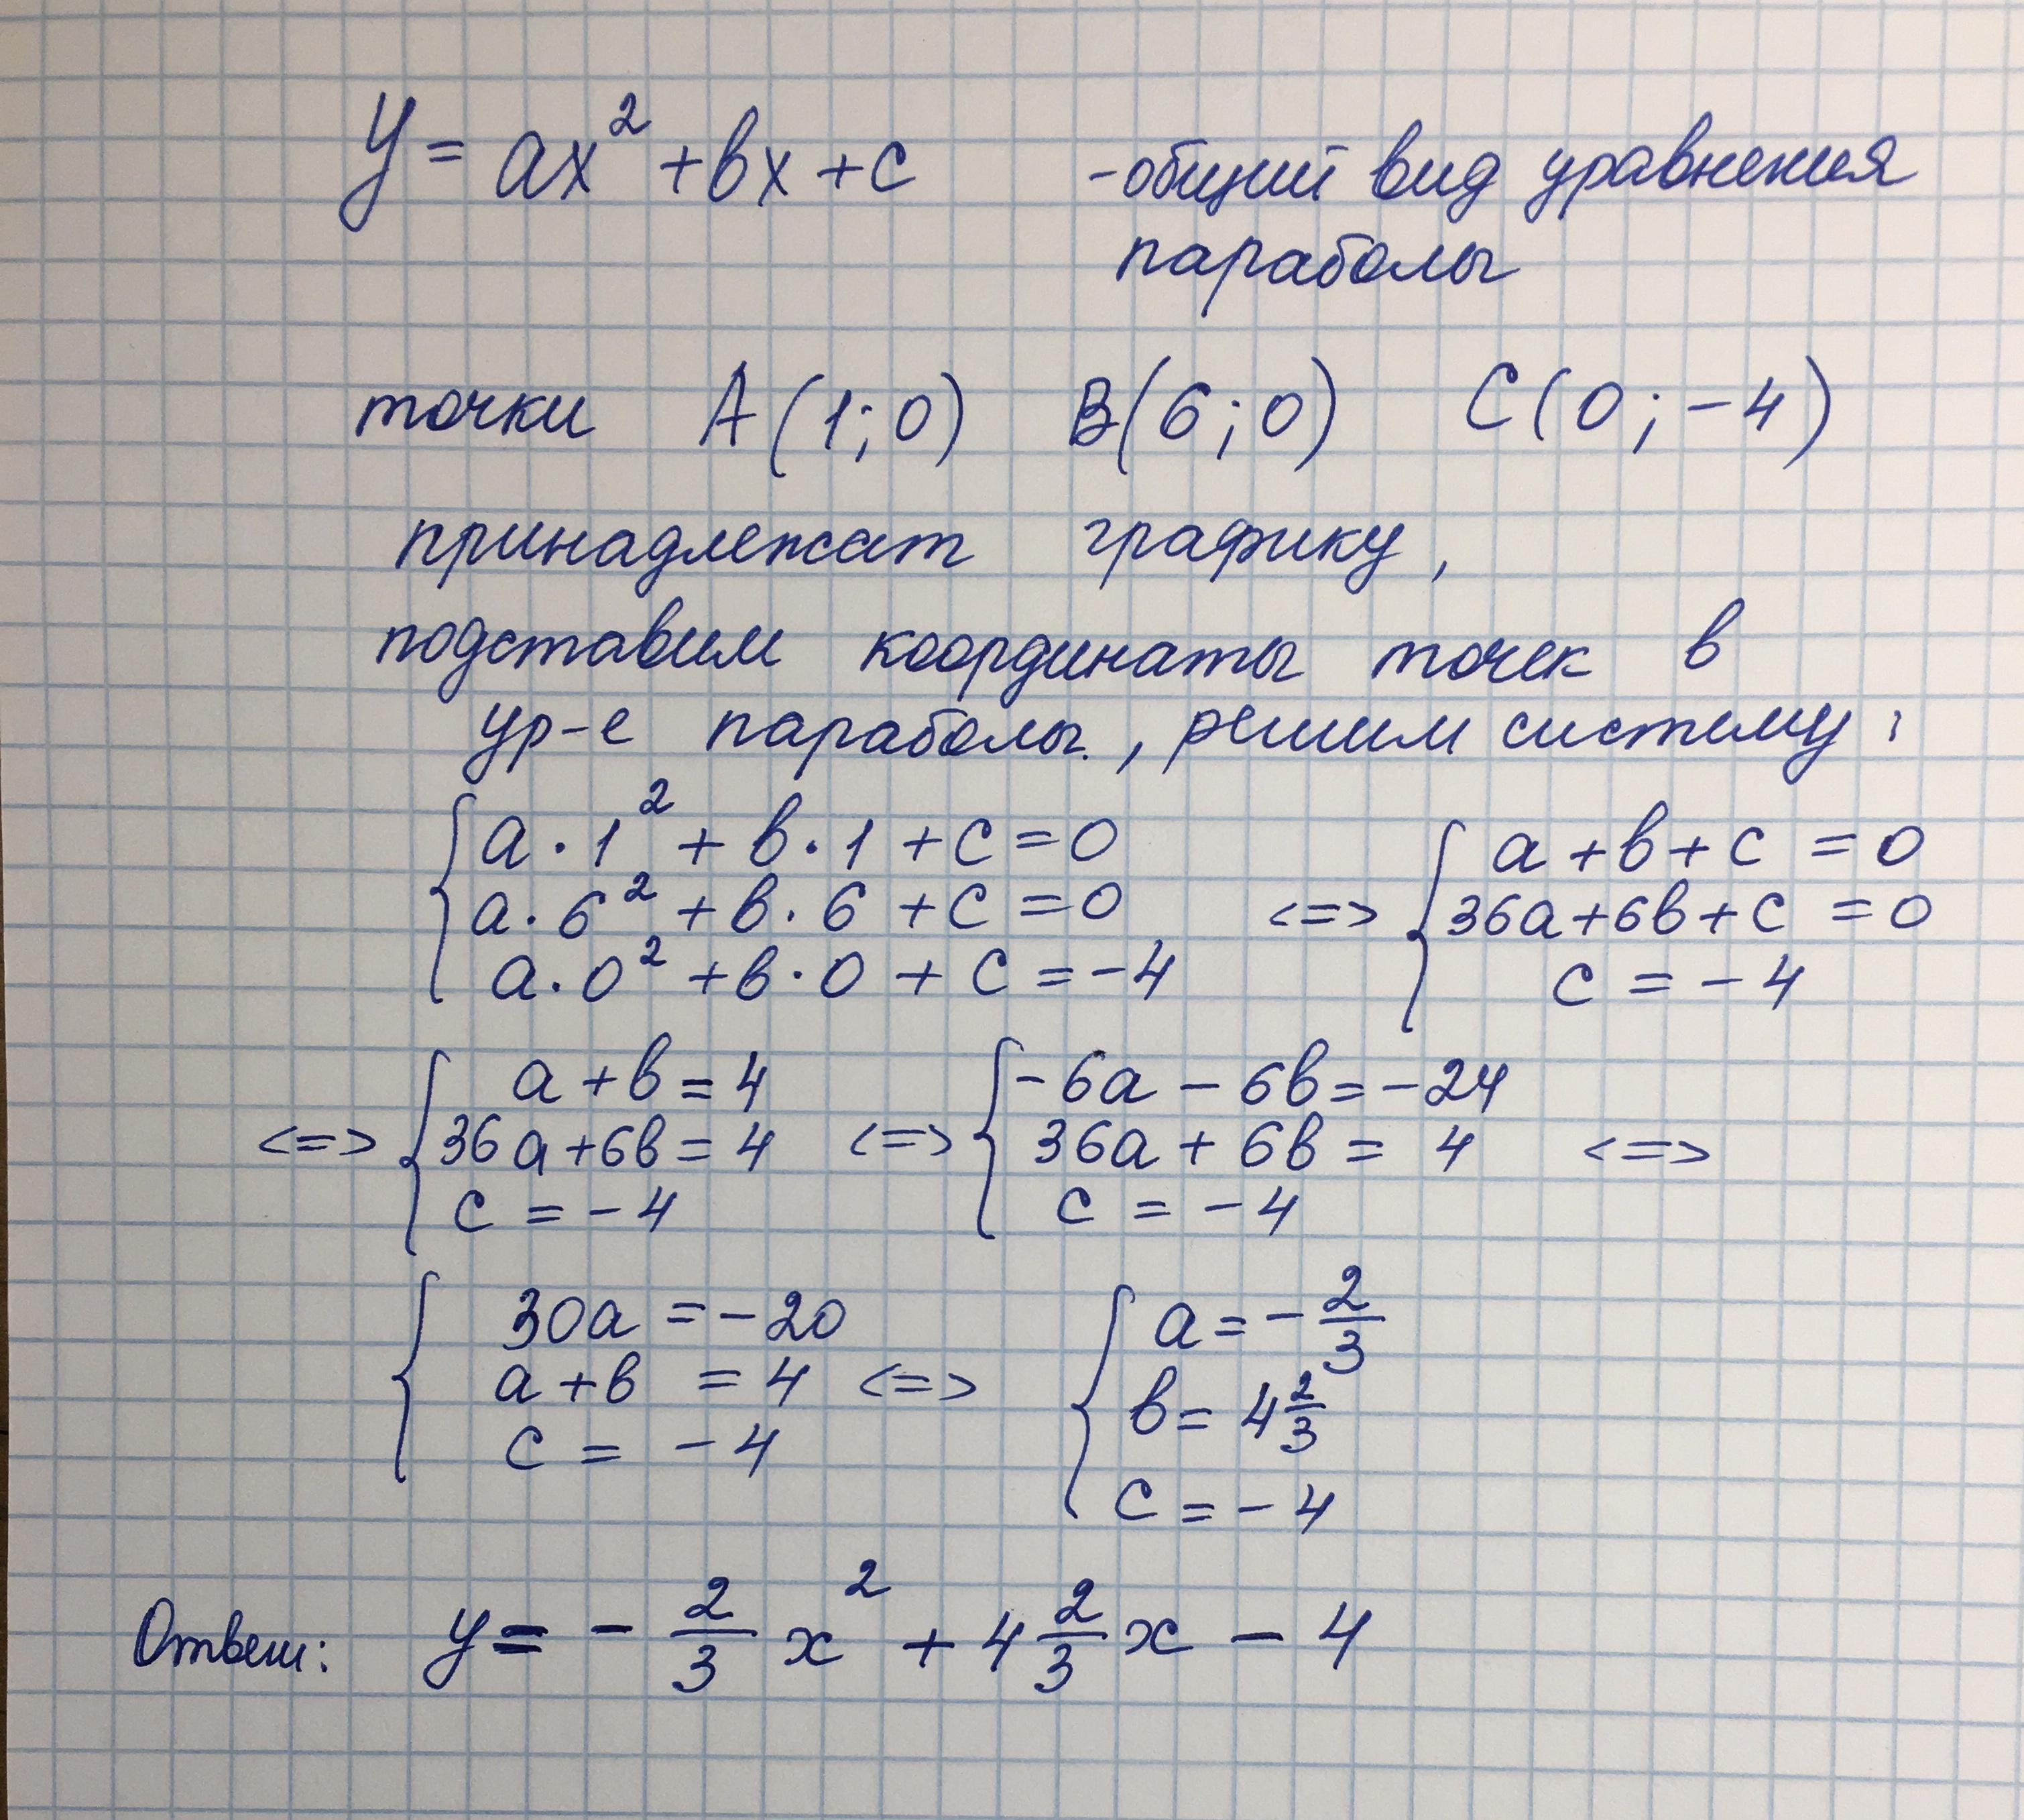 y = ax² + bx + c - общий вид уравнения
параболы
точки A(1;0) B(6;0) C(0;-4)
принадлежат графику,
подставим координаты точек в
ур-е параболы., решим систему:
{ a·1² + b·1 + c = 0
a·6² + b·6 + c = 0
a·0² + b·0 + c = -4 <=> { a + b + c = 0
36a + 6b + c = 0
c = -4
<=> { a + b = 4
36a + 6b = 4
c = -4 <=> { -6a - 6b = -24
36a + 6b = 4
c = -4 <=>
{ 30a = -20
a + b = 4
c = -4 <=> { a = -2/3
b = 4 2/3
c = -4
Ответ: y = - 2/3 x² + 4 2/3 x - 4